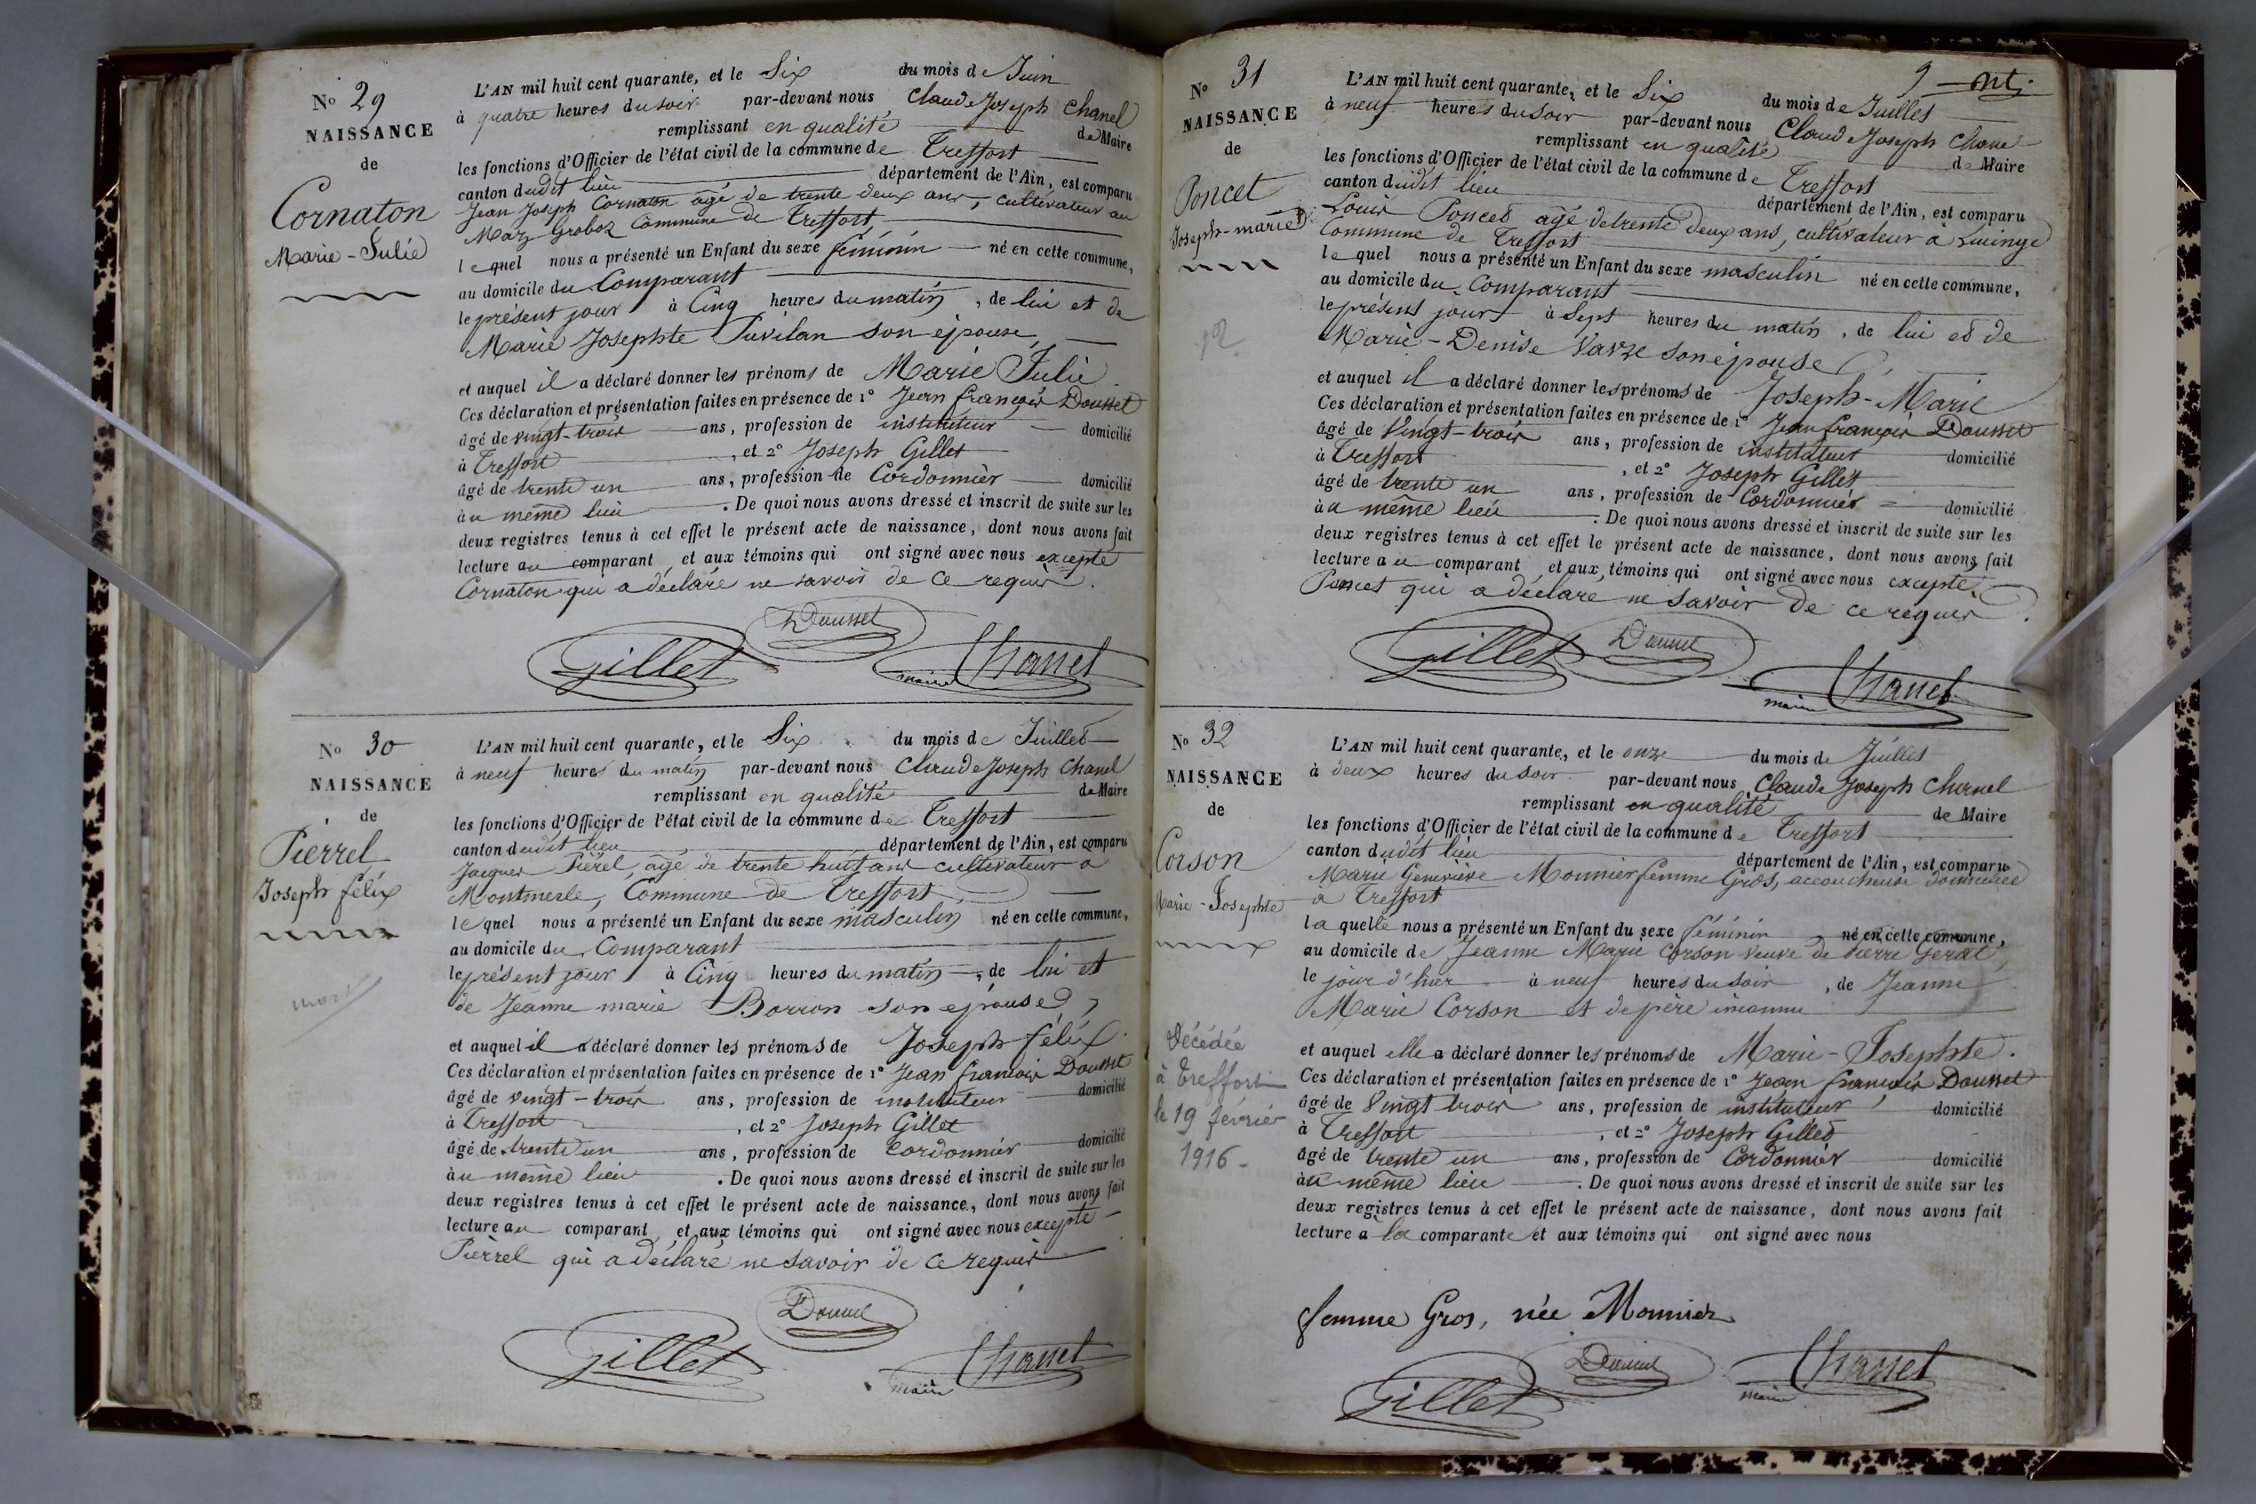 No 29
NAISSANCE
de
Cornaton
Marie-Julie
L'AN mil huit cent quarante, et le Six du mois de Juin
à quatre heures du soir par-devant nous Claude Joseph Chanel
remplissant en qualité de Maire
les fonctions d'Officier de l'état civil de la commune de Treffort
canton dudit lieu département de l'Ain, est comparu
Jean Joseph Cornaton âgé de trente deux ans, cultivateur au
Groboz Commune de Treffort,
lequel nous a présenté un Enfant du sexe féminin né en cette commune,
au domicile du Comparant
le présent jour à Cinq heures du matin, de lui et de
Marie Josephte son épouse,
et auquel il a déclaré donner les prénoms de Marie Julie
Ces déclaration et présentation faites en présence de 1° Jean françois Dousset
âgé de vingt-trois ans, profession de instituteur domicilié
à Treffort, et 2° Joseph Gillet
âgé de trente un ans, profession de Cordonnier domicilié
au même lieu. De quoi nous avons dressé et inscrit de suite sur les
deux registres tenus à cet effet le présent acte de naissance, dont nous avons fait
lecture au comparant et aux témoins qui ont signé avec nous excepté
Cornaton qui a déclaré ne savoir de ce requis.
Dousset
Gillet
Chanel
maire
No 30
NAISSANCE
de
Pierrel
Joseph félix
mort
L'AN mil huit cent quarante, et le Six du mois de Juillet
à neuf heures du matin par-devant nous Claude Joseph Chanel
remplissant en qualité de Maire
les fonctions d'Officier de l'état civil de la commune de Treffort
canton dudit lieu département de l'Ain, est comparu
Jacques Pierel, âgé de trente huit ans cultivateur à
Montmerle, Commune de Treffort,
lequel nous a présenté un Enfant du sexe masculin né en cette commune,
au domicile du Comparant
le présent jour à Cinq heures du matin, de lui et
de Jeanne marie Borron son épouse,
et auquel il a déclaré donner les prénoms de Joseph félix.
Ces déclaration et présentation faites en présence de 1° Jean françois Dousset
âgé de vingt-trois ans, profession de instituteur domicilié
à Treffort, et 2° Joseph Gillet
âgé de trente un ans, profession de Cordonnier domicilié
au même lieu. De quoi nous avons dressé et inscrit de suite sur les
deux registres tenus à cet effet le présent acte de naissance, dont nous avons fait
lecture au comparant et aux témoins qui ont signé avec nous excepté
Pierrel qui a déclaré ne savoir de ce requis
Dousset
Gillet
Chanel
maire
9
No 31
NAISSANCE
de
Poncet
Joseph-marie
L'AN mil huit cent quarante, et le Six du mois de Juillet
à neuf heures du soir par-devant nous Claude Joseph Chanel
remplissant en qualité de Maire
les fonctions d'Officier de l'état civil de la commune de Treffort
canton dudit lieu département de l'Ain, est comparu
Louis Poncet âgé de trente deux ans, cultivateur à Lucinge
Commune de Treffort
lequel nous a présenté un Enfant du sexe masculin né en cette commune,
au domicile du Comparant
le présent jour à Sept heures du matin, de lui et de
Marie-Denise son épouse,
et auquel il a déclaré donner les prénoms de Joseph-Marie
Ces déclaration et présentation faites en présence de 1° Jean françois Dousset
âgé de Vingt-trois ans, profession de instituteur domicilié
à Treffort, et 2° Joseph Gillet
âgé de trente un ans, profession de Cordonnier domicilié
au même lieu. De quoi nous avons dressé et inscrit de suite sur les
deux registres tenus à cet effet le présent acte de naissance, dont nous avons fait
lecture au comparant et aux témoins qui ont signé avec nous excepté
Poncet qui a déclaré ne savoir de ce requis.
Gillet
Dousset
Chanel
maire
No 32
NAISSANCE
de
Corson
Marie-Josephte
Décédée
à Treffort
le 19 février
1916-
L'AN mil huit cent quarante, et le onze du mois de Juillet
à deux heures du soir par-devant nous Claude Joseph Chanel
remplissant en qualité de Maire
les fonctions d'Officier de l'état civil de la commune de Treffort
canton dudit lieu département de l'Ain, est comparu
Marie Geneviève Monnier femme Gros, accoucheuse domiciliée
à Treffort
laquelle nous a présenté un Enfant du sexe féminin né en cette commune,
au domicile de Jeanne Marie Corson veuve de Pierre
le jour d'hier à neuf heures du soir, de Jeanne
Marie Corson et de père inconnu
et auquel elle a déclaré donner les prénoms de Marie-Josephte.
Ces déclaration et présentation faites en présence de 1° Jean françois Dousset
âgé de Vingt trois ans, profession de instituteur domicilié
à Treffort, et 2° Joseph Gillet
âgé de trente un ans, profession de Cordonnier domicilié
au même lieu. De quoi nous avons dressé et inscrit de suite sur les
deux registres tenus à cet effet le présent acte de naissance, dont nous avons fait
lecture à la comparante et aux témoins qui ont signé avec nous
femme Gros, née Monnier
Dousset
Gillet
Chanel
maire